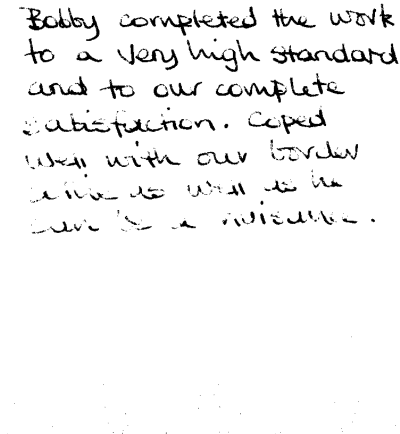 Bobby completed the work
to a very high standard
and to our complete
satisfaction. Coped
well with our border
as well as he
can be a nuisance.